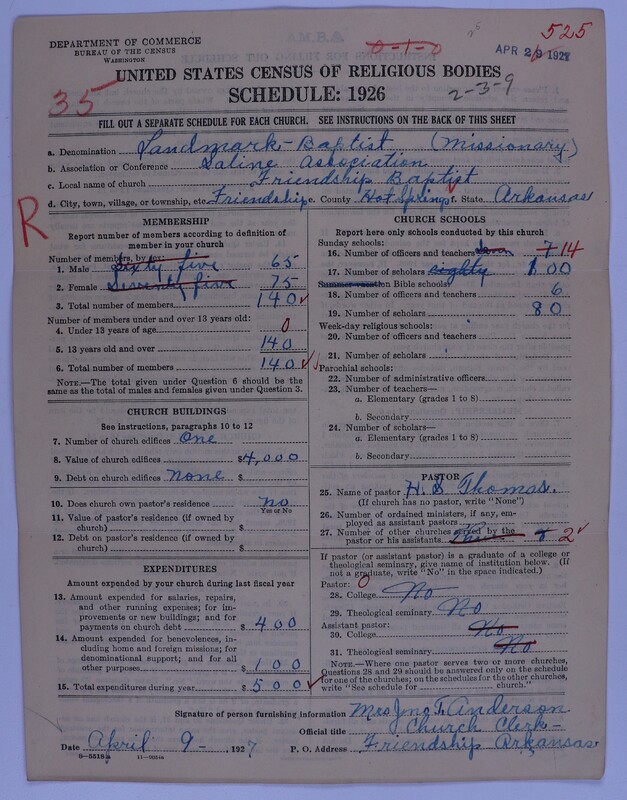 525
DEPARTMENT OF COMMERCE
BUREAU OF THE CENSUS
WASHINGTON
0-1-0
APR 29 1927
UNITED STATES CENSUS OF RELIGIOUS BODIES
35
SCHEDULE: 1926
2-3-9
FILL OUT A SEPARATE SCHEDULE FOR EACH CHURCH. SEE INSTRUCTIONS ON THE BACK OF THIS SHEET
a. Denomination Landmark-Baptist (Missionary)
b. Association or Conference Saline Association
c. Local name of church Friendship Baptist
d. City, town, village, or township, etc. Friendship e. County Hot Springs f. State Arkansas
R
MEMBERSHIP
Report number of members according to definition of
member in your church
Number of members, by sex:
1. Male sixty five 65
2. Female Seventy five 75
3. Total number of members 140
Number of members under and over 13 years old:
4. Under 13 years of age 0
5. 13 years old and over 140
6. Total number of members 140
NOTE.—The total given under Question 6 should be
same as the total of males and females given under Question 3.
CHURCH BUILDINGS
See instructions, paragraphs 10 to 12
7. Number of church edifices One
8. Value of church edifices $4,000
9. Debt on church edifices None $
10. Does church own pastor's residence no
Yes or No
11. Value of pastor's residence (if owned by
church) $
12. Debt on pastor's residence (if owned by
church) $
EXPENDITURES
Amount expended by your church during last fiscal year
13. Amount expended for salaries, repairs,
and other running expenses; for im-
provements or new buildings; and for
payments on church debt $400
14. Amount expended for benevolences, in-
cluding home and foreign missions; for
denominational support; and for all
other purposes $100
15. Total expenditures during year $500
CHURCH SCHOOLS
Report here only schools conducted by this church
Sunday schools:
16. Number of officers and teachers 7 14
17. Number of scholars eighty 100
Summer vacation Bible schools:
18. Number of officers and teachers 6
19. Number of scholars 80
Week-day religious schools:
20. Number of officers and teachers
21. Number of scholars
Parochial schools:
22. Number of administrative officers
23. Number of teachers—
a. Elementary (grades 1 to 8)
b. Secondary
24. Number of scholars—
a. Elementary (grades 1 to 8)
b. Secondary
PASTOR
25. Name of pastor H. S. Thomas.
(If church has no pastor, write "None")
26. Number of ordained ministers, if any, em-
ployed as assistant pastors
27. Number of other churches served by the
pastor or his assistants 2
If pastor (or assistant pastor) is a graduate of a college or
theological seminary, give name of institution below. (If
not a graduate, write "No" in the space indicated.)
Pastor: 0
28. College No
29. Theological seminary No
Assistant pastor:
30. College No
31. Theological seminary No
NOTE.—Where one pastor serves two or more churches,
Questions 28 and 29 should be answered only on the schedule
for one of the churches; on the schedules for the other churches,
write "See schedule for church."
Signature of person furnishing information Mrs Jno T. Anderson
Official title Church Clerk-
Date April 9-, 1927 P. O. Address Friendship Arkansas
8-5518a 11-8051a